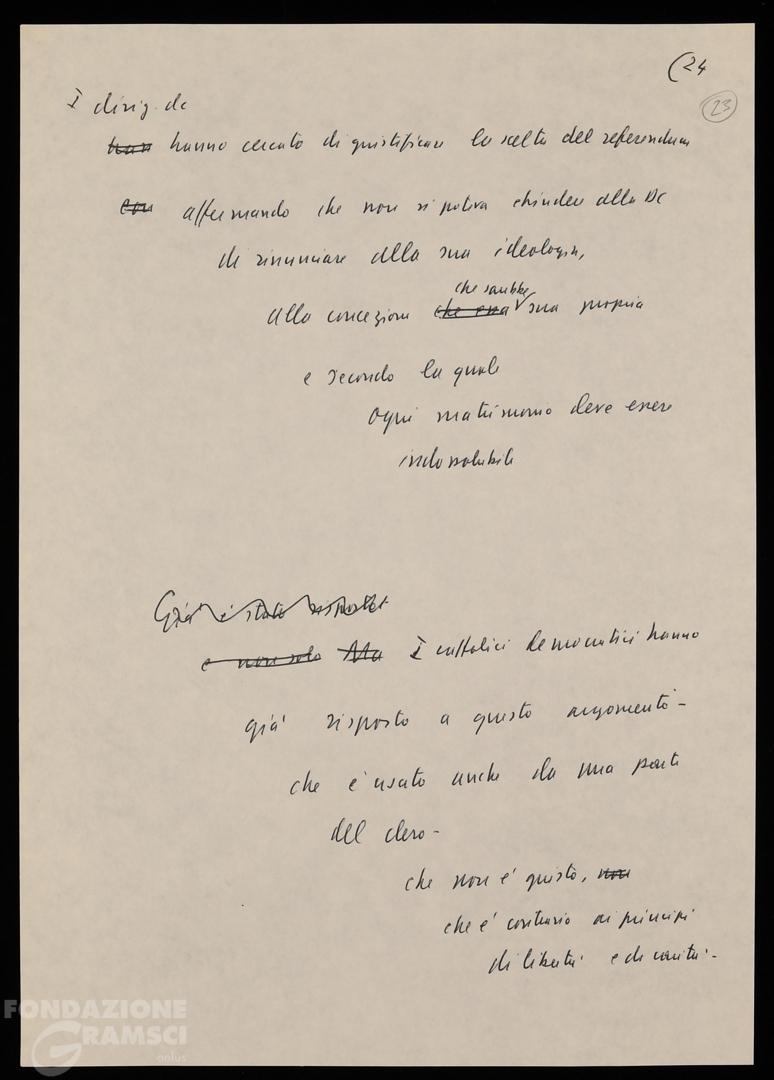 (24
23
I dirig. dc
han hanno cercato di giustificare la scelta del referendum
con affermando che non si poteva chiedere alla Dc
di rinunciare alla sua ideologia,
che sarebbe
alla concezione che era sua propria
e secondo la quale
ogni matrimonio deve essere
indossolubile
Già è stato risposto
e non solo Ma I cattolici democratici hanno
già risposto a questo argomento -
che è usato anche da una parte
del clero -
che non è giusto, non
che è contrario ai principi
di libertà e di carità. -
FONDAZIONE
GRAMSCI
onlus